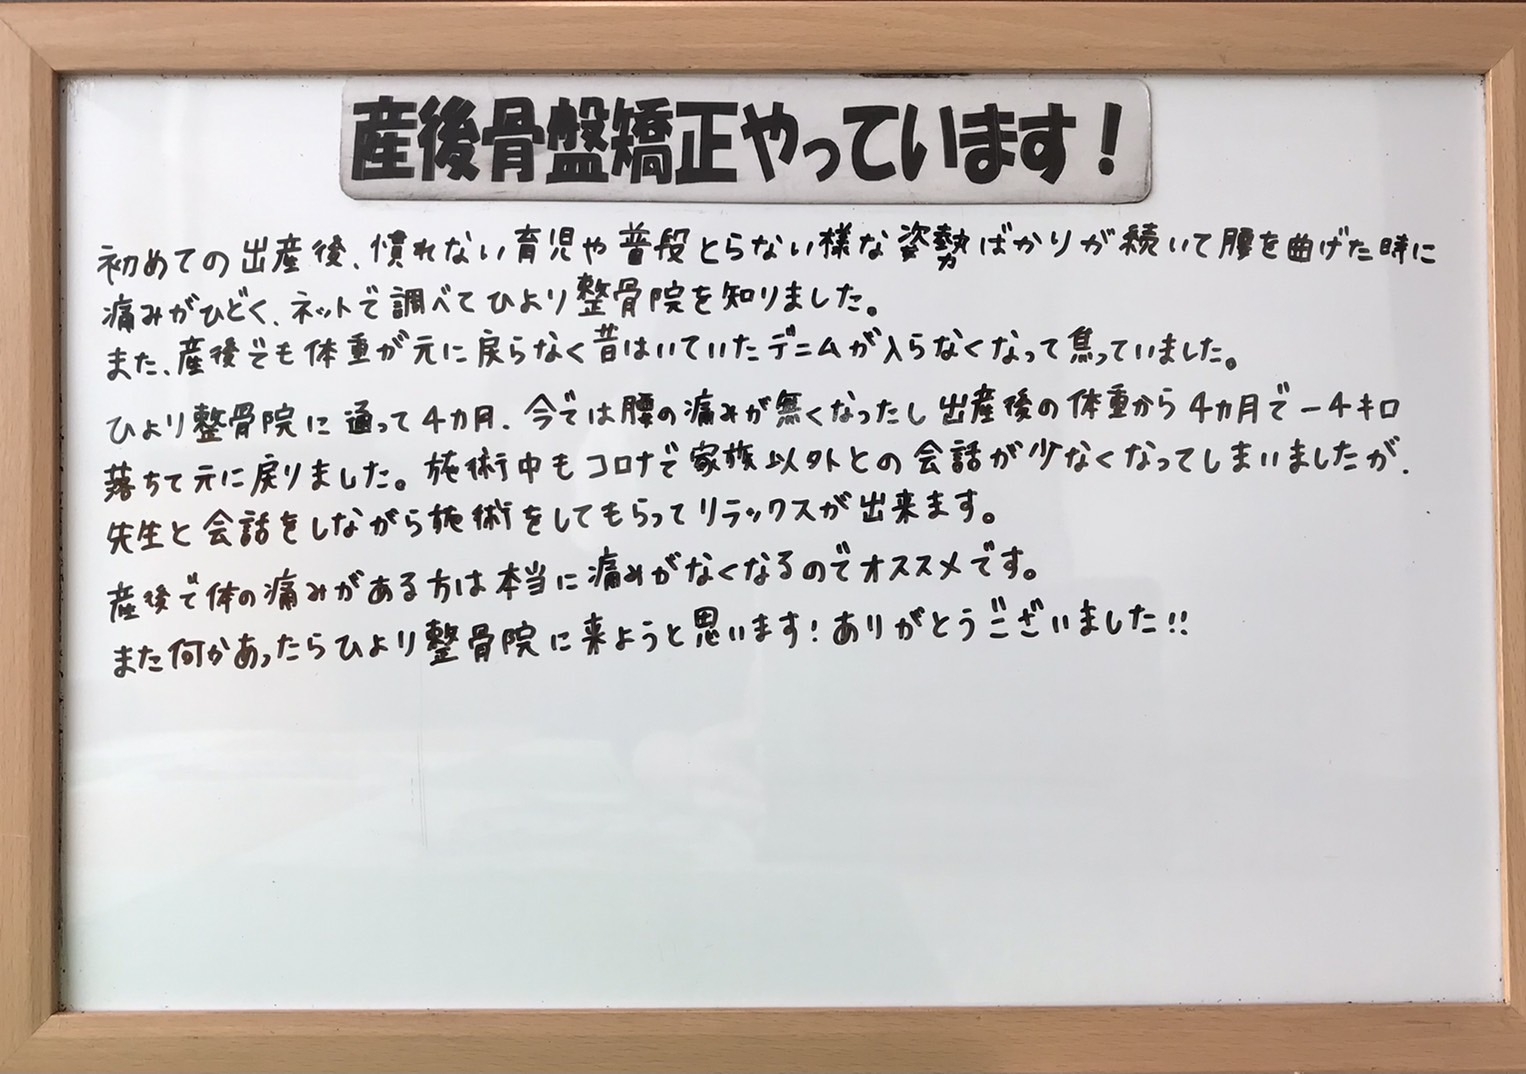 産後骨盤矯正やっています！
初めての出産後、慣れない育児や普段とらない様な姿勢ばかりが続いて腰を曲げた時に
痛みがひどく、ネットで調べてひより整骨院を知りました。
また、産後でも体重が元に戻らなく昔はいていたデニムが入らなくなって焦っていました。
ひより整骨院に通って4カ月、今では腰の痛みが無くなったし出産後の体重から4カ月で-4キロ
落ちて元に戻りました。施術中もコロナで家族以外との会話が少なくなってしまいましたが、
先生と会話をしながら施術をしてもらってリラックスが出来ます。
産後で体の痛みがある方は本当に痛みがなくなるのでオススメです。
また何かあったらひより整骨院に来ようと思います!ありがとうございました!!